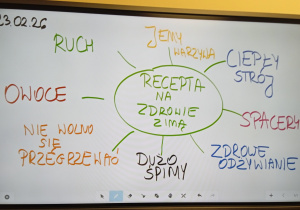 23.02.26
RUCH
JEMY
WARZYWA
CIEPŁY
STRÓJ
OWOCE
RECEPTA
NA
ZDROWIE
ZIMĄ
SPACERY
NIE WOLNO
SIĘ
PRZEGRZEWAĆ
DUŻO
ŚPIMY
ZDROWE
ODŻYWIANIE